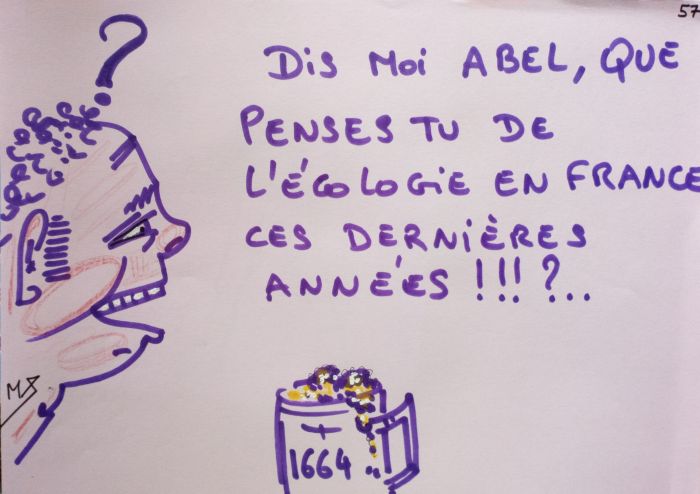 57
DIS MOI ABEL, QUE
PENSES TU DE
L'ÉCOLOGIE EN FRANCE
CES DERNIÈRES
ANNÉES !!! ?...
MS
1664